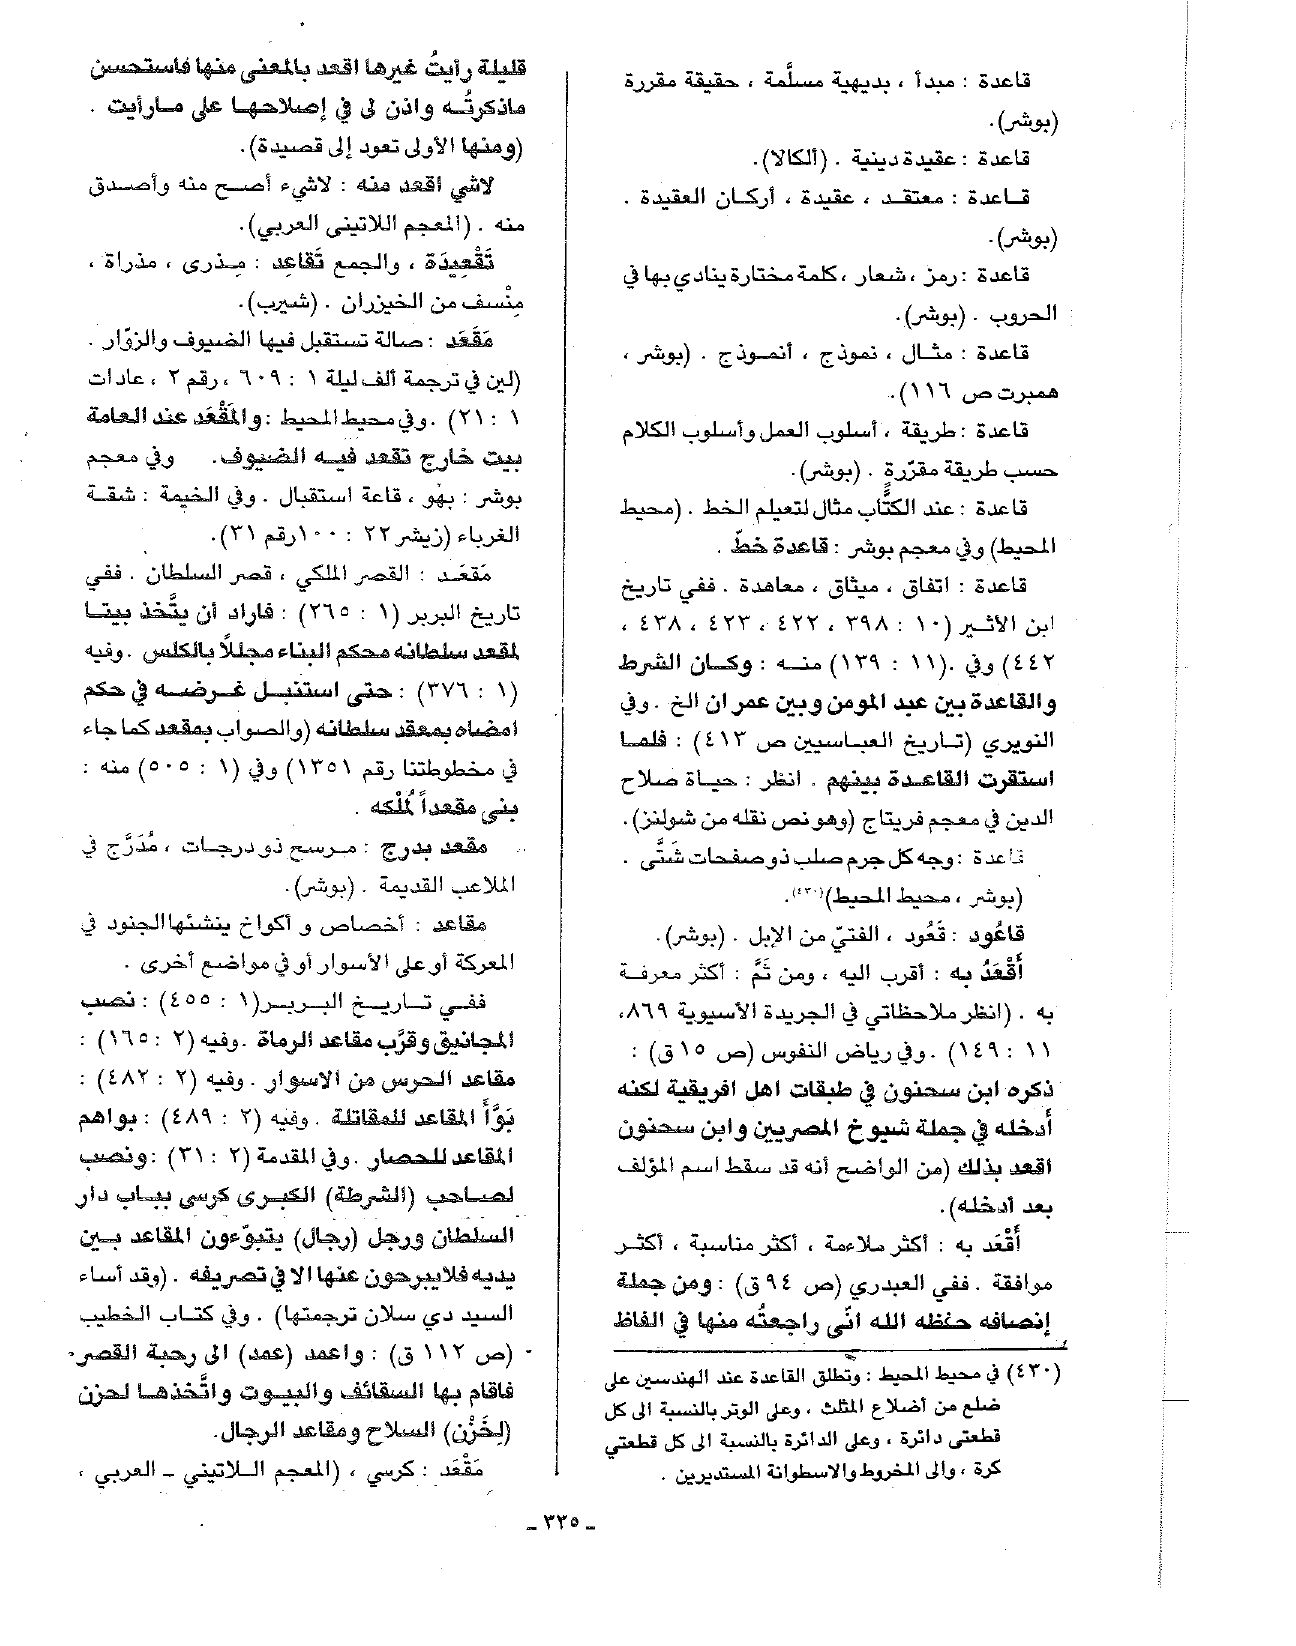 قاعدة : مبدأ ، بديهية مسلَّمة ، حقيقة مقررة
(بوشر).
قاعدة : عقيدة دينية . (ألكالا).
قاعدة : معتقد ، عقيدة ، أركان العقيدة .
(بوشر).
قاعدة : رمز ، شعار ، كلمة مختارة ينادي بها في
الحروب . (بوشر).
قاعدة : مثال ، نموذج ، أنموذج . (بوشر ،
همبرت ص ١١٦).
قاعدة : طريقة ، أسلوب العمل وأسلوب الكلام
حسب طريقة مقرّرة . (بوشر).
قاعدة : عند الكتَّاب مثال لتعيلم الخط . (محيط
المحيط) وفي معجم بوشر : قاعدة خطّ .
قاعدة : اتفاق ، ميثاق ، معاهدة . ففي تاريخ
ابن الأثير (١٠ : ٣٩٨ ، ٤٢٢ ، ٤٢٣ ، ٤٣٨ ،
٤٤٢) وفي .(١١ : ١٣٩) منه : وكان الشرط
والقاعدة بين عبد المومن وبين عمر ان الخ . وفي
النويري (تاريخ العباسيين ص ٤١٣) : فلما
استقرت القاعدة بينهم . انظر : حياة صلاح
الدين في معجم فريتاج (وهو نص نقله من شولنز).
قاعدة : وجه كل جرم صلب ذو صفحات شَتَّى .
(بوشر ، محيط المحيط)(٤٣٠).
قاعُود : قَعُود ، الفتيّ من الإبل . (بوشر).
أَقْعَدُ به : أقرب اليه ، ومن ثَمَّ : أكثر معرفة
به . (انظر ملاحظاتي في الجريدة الأسيوية ٨٦٩،
١١ : ١٤٩) . وفي رياض النفوس (ص ١٥ ق) :
ذكره ابن سحنون في طبقات اهل افريقية لكنه
أدخله في جملة شيوخ المصريين وابن سحنون
اقعد بذلك (من الواضح أنه قد سقط اسم المؤلف
بعد أدخله).
أَقْعَد به : أكثر ملاءمة ، أكثر مناسبة ، أكثر
موافقة . ففي العبدري (ص ٩٤ ق) : ومن جملة
إنصافه حفظه الله انّى راجعتُه منها في الفاظ
(٤٣٠) في محيط المحيط : وتطلق القاعدة عند الهندسين على
ضلع من أضلاع المثلث ، وعلى الوتر بالنسبة الى كل
قطعتى دائرة ، وعلى الدائرة بالنسبة الى كل قطعتي
كرة ، والى المخروط والاسطوانة المستديرين .
قليلة رأيتُ غيرها اقعد بالمعنى منها فاستحسن
ماذكرتُه واذن لى في إصلاحها على مارأيت .
(ومنها الأولى تعود إلى قصيدة).
لاشي اقعد منه : لاشيء أصح منه وأصدق
منه . (المعجم اللاتينى العربي).
تَقْعِيدَة ، والجمع تَقاعِد : مِذرى ، مذراة ،
مِنْسف من الخيزران . (شيرب).
مَقَعَد : صالة تستقبل فيها الضيوف والزوّار .
(لين في ترجمة ألف ليلة ١ : ٦٠٩ ، رقم ٢ ، عادات
١ : ٢١) . وفي محيط المحيط : والمَقْعَد عند العامة
بيت خارج تقعد فيه الضيوف. وفي معجم
بوشر : بهْو ، قاعة استقبال . وفي الخيمة : شقة
الغرباء (زيشر ٢٢ : ١٠٠ رقم ٣١).
مَقعَد : القصر الملكي ، قصر السلطان . ففي
تاريخ البربر (١ : ٢٦٥) : فاراد أن يتَّخذ بيتا
لمقعد سلطانه محكم البناء مجللاً بالكلس . وفيه
(١ : ٣٧٦) : حتى استنبل غرضه في حكم
امضاه بمعقد سلطانه (والصواب بمقعد كما جاء
في مخطوطتنا رقم ١٣٥١) وفي (١ : ٥٠٥) منه :
بنى مقعداً لُملْكه .
مقعد بدرج : مرسح ذو درجات ، مُدَرَّج في
الملاعب القديمة . (بوشر).
مقاعد : أخصاص و أكواخ ينشئها الجنود في
المعركة أو على الأسوار أو في مواضع أخرى .
ففي تاريخ البربر (١ : ٤٥٥) : نصب
المجانيق وقرَّب مقاعد الرماة . وفيه (٢ : ١٦٥) :
مقاعد الحرس من الاسوار . وفيه (٢ : ٤٨٢) :
بَوَّأَ المقاعد للمقاتلة . وفيه (٢ : ٤٨٩) : بواهم
المقاعد للحصار . وفي المقدمة (٢ : ٣١) : ونصب
لصاحب (الشرطة) الكبرى كرسى بباب دار
السلطان ورجل (رجال) يتبوّءون المقاعد بين
يديه فلايبرحون عنها الا في تصريفه . (وقد أساء
السيد دي سلان ترجمتها) . وفي كتاب الخطيب
(ص ١١٢ ق) : واعمد (عمد) الى رحبة القصر
فاقام بها السقائف والبيوت واتَّخذها لحزن
(لِخَزْن) السلاح ومقاعد الرجال.
مَقْعَد : كرسي ، (المعجم اللاتيني - العربي ،
- ٣٣٥ -